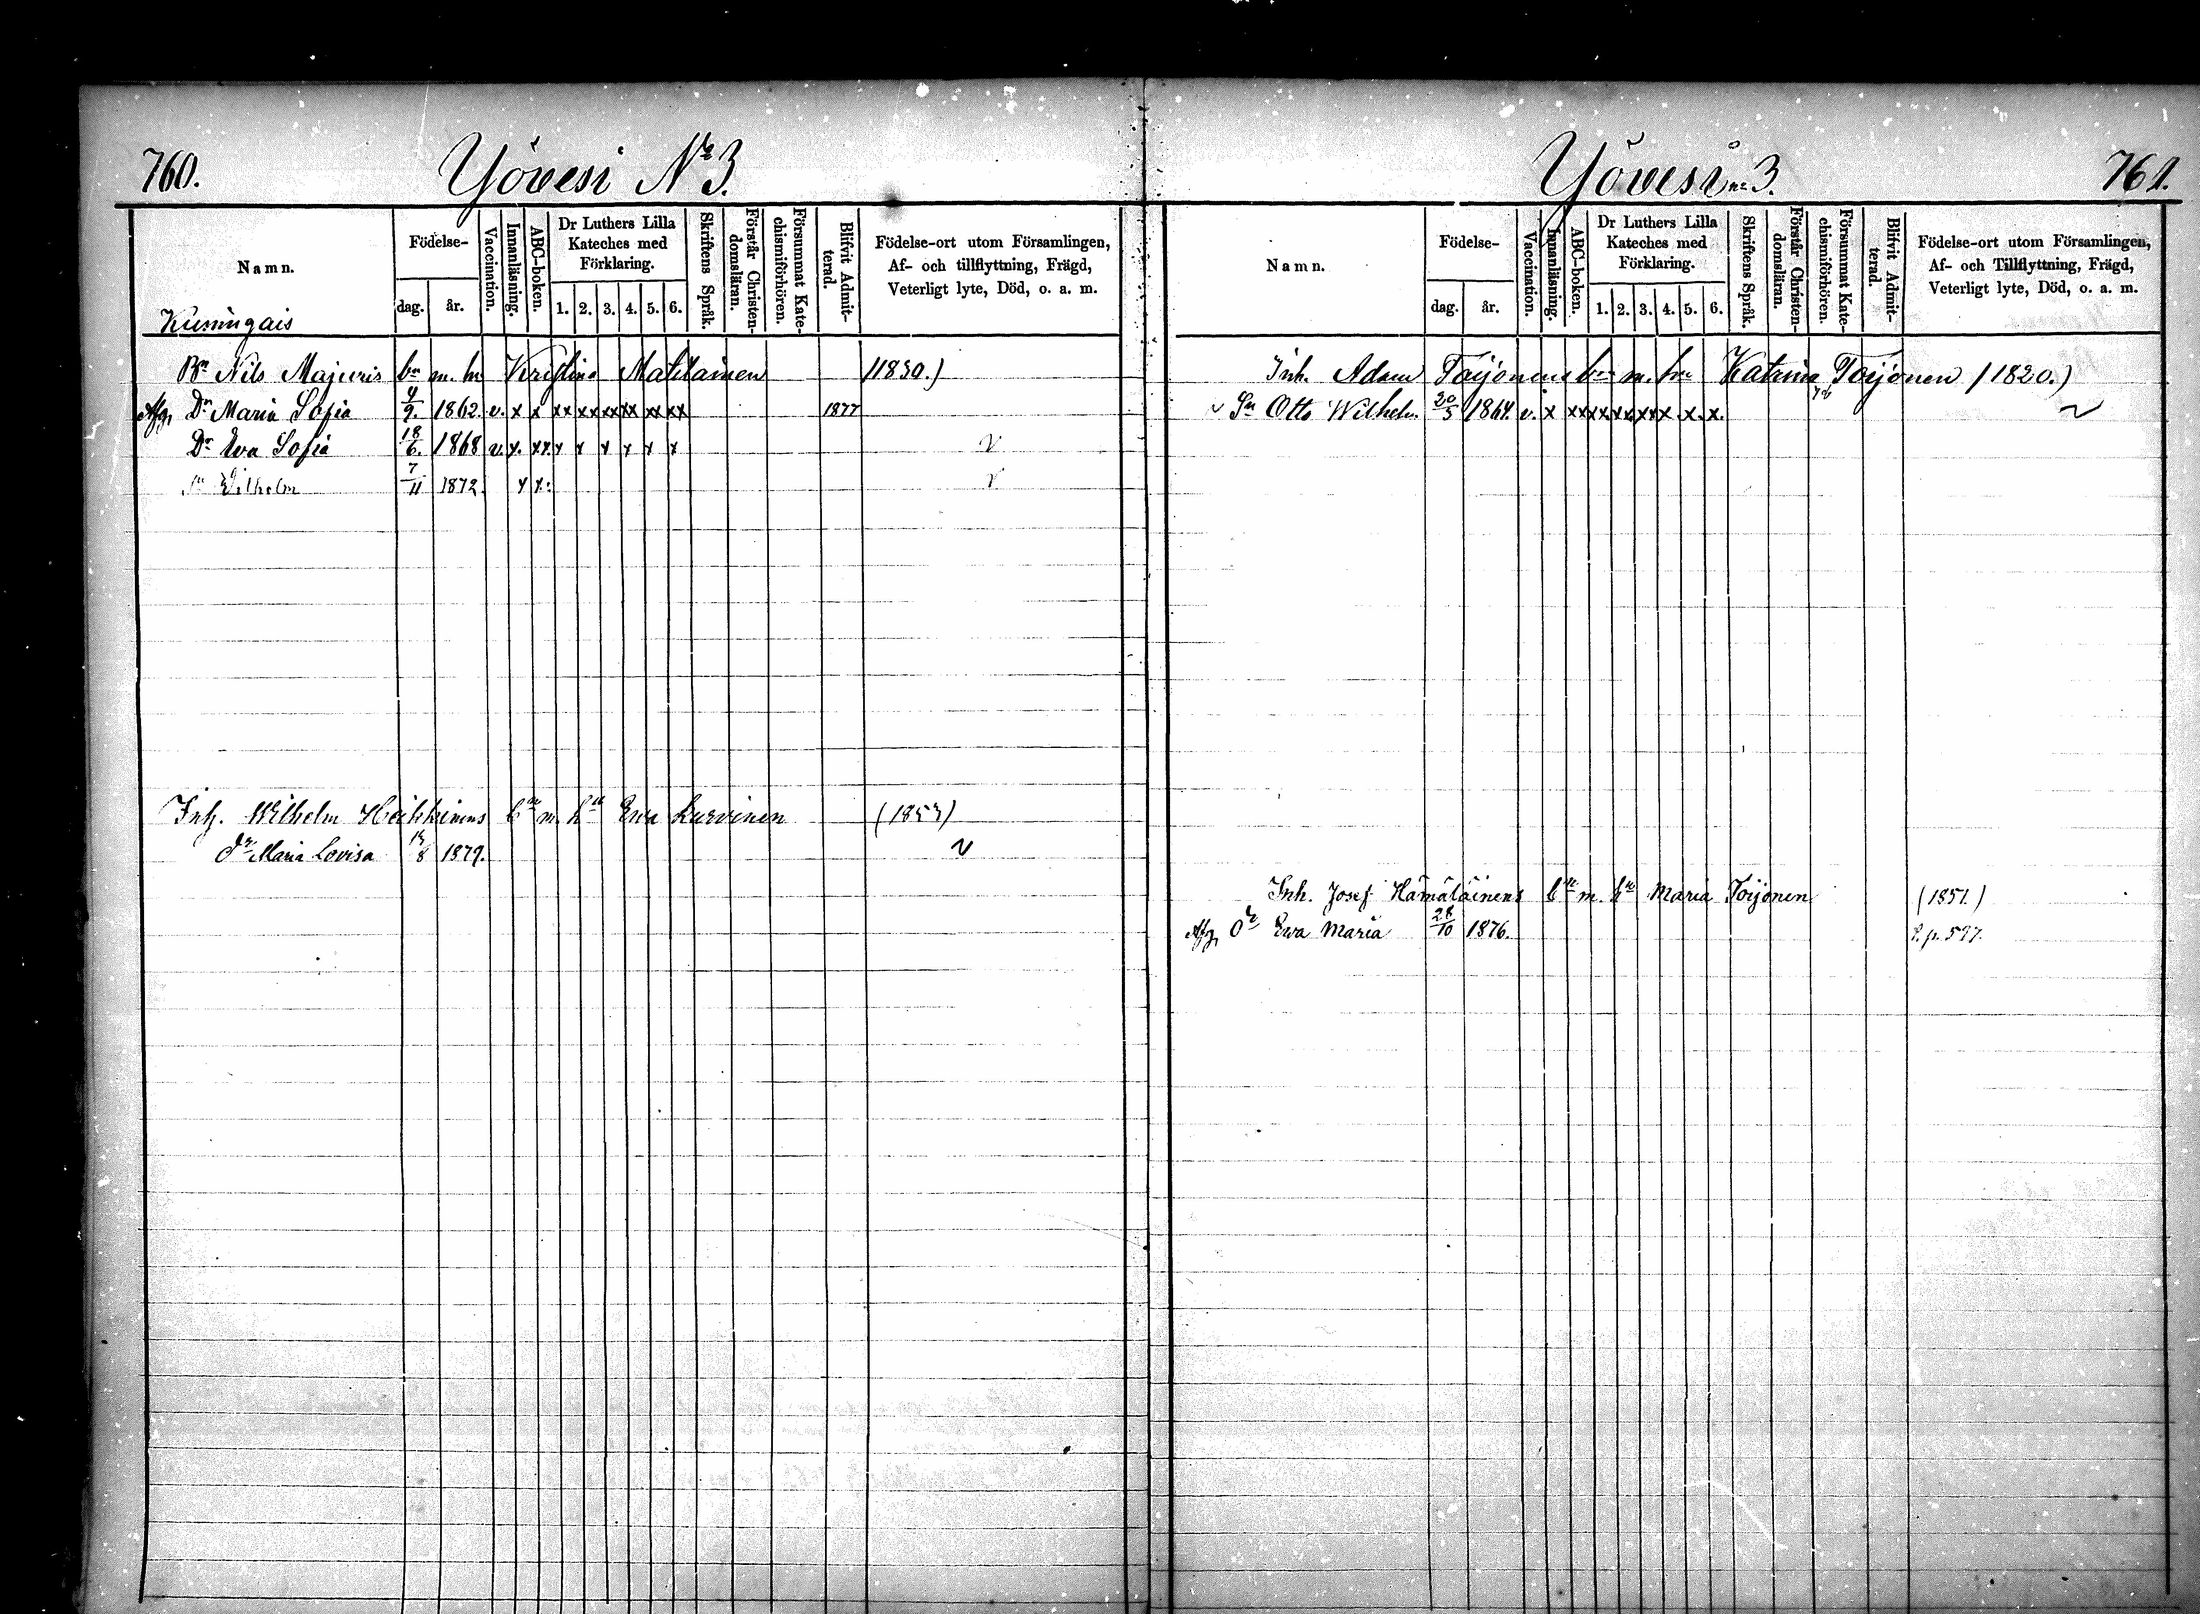 760.
Yövesi № 3.
Namn.
Födelse-
dag. år.
Vaccination.
Innanläsning.
ABC-boken.
Dr Luthers Lilla Kateches med Förklaring.
1. 2. 3. 4. 5. 6.
Skriftens Språk.
Förstår Christen-domsläran.
Försummat Kate-chismiförhören.
Blifvit Admit-terad.
Födelse-ort utom Församlingen,
Af- och tillflyttning, Frägd,
Veterligt lyte, Död, o. a. m.
Kuningais
Bn Nils Majuris bn m. hu Kristina Matilainen (1830.)
Afg. Dr Maria Sofia 4/9. 1862. v. x x xx xx xx xx xx xx 1877
Dr Eva Sofia 18/6. 1868 v. x. xx. x x x x x x v
Sn Wilhelm 7/11 1872. x x. v
Inh. Wilhelm Heikkinens bn m. hu Ewa Kurvinen (1853)
dr Maria Lovisa /8 1879. v
Yövesi № 3.
761.
Namn.
Födelse-
dag. år.
Vaccination.
Innanläsning.
ABC-boken.
Dr Luthers Lilla Kateches med Förklaring.
1. 2. 3. 4. 5. 6.
Skriftens Språk.
Förstår Christen-domsläran.
Försummat Kate-chismiförhören.
Blifvit Admit-terad.
Födelse-ort utom Församlingen,
Af- och Tillflyttning, Frägd,
Veterligt lyte, Död, o. a. m.
Inh. Adam Toijonens bn m. hu Katrina Toijonen (1820.)
v Sn Otto Wilhelm. 20/5 1864. v. x xx xx xx xx x. x. x. v
Inh. Josef Hämäläinens bn m. hu Maria Toijonen (1851.)
Afg. dr Ewa Maria 28/10 1876. P. p. 597.